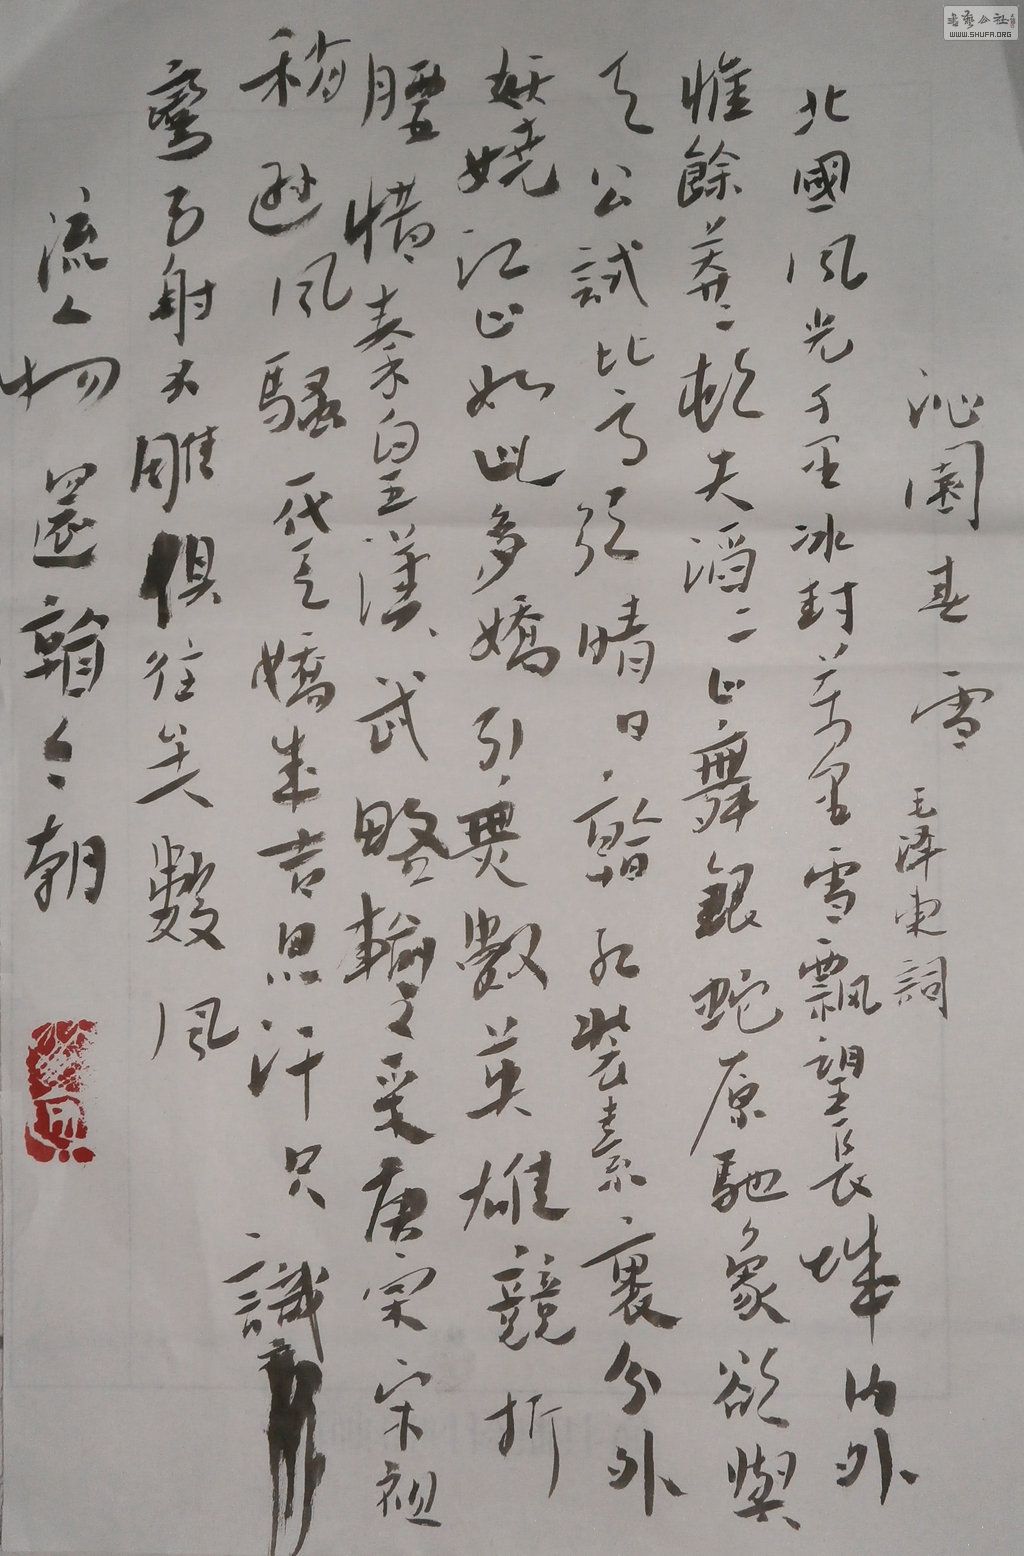 書藝公社
WWW.SHUFA.ORG
沁園春 雪 毛泽東詞
北國風光千里冰封萬里雪飄望長城內外
惟餘莽〻頓失滔〻山舞銀蛇原馳象欲與
天公試比高須晴日看紅裝素裹分外
妖嬈江山如此多嬌引無數英雄競折
腰惜秦皇漢武略輸文采唐宗宋祖
稍遜風騷一代天嬌成吉思汗只識
彎弓射大雕俱往矣數風
流人物還看今朝